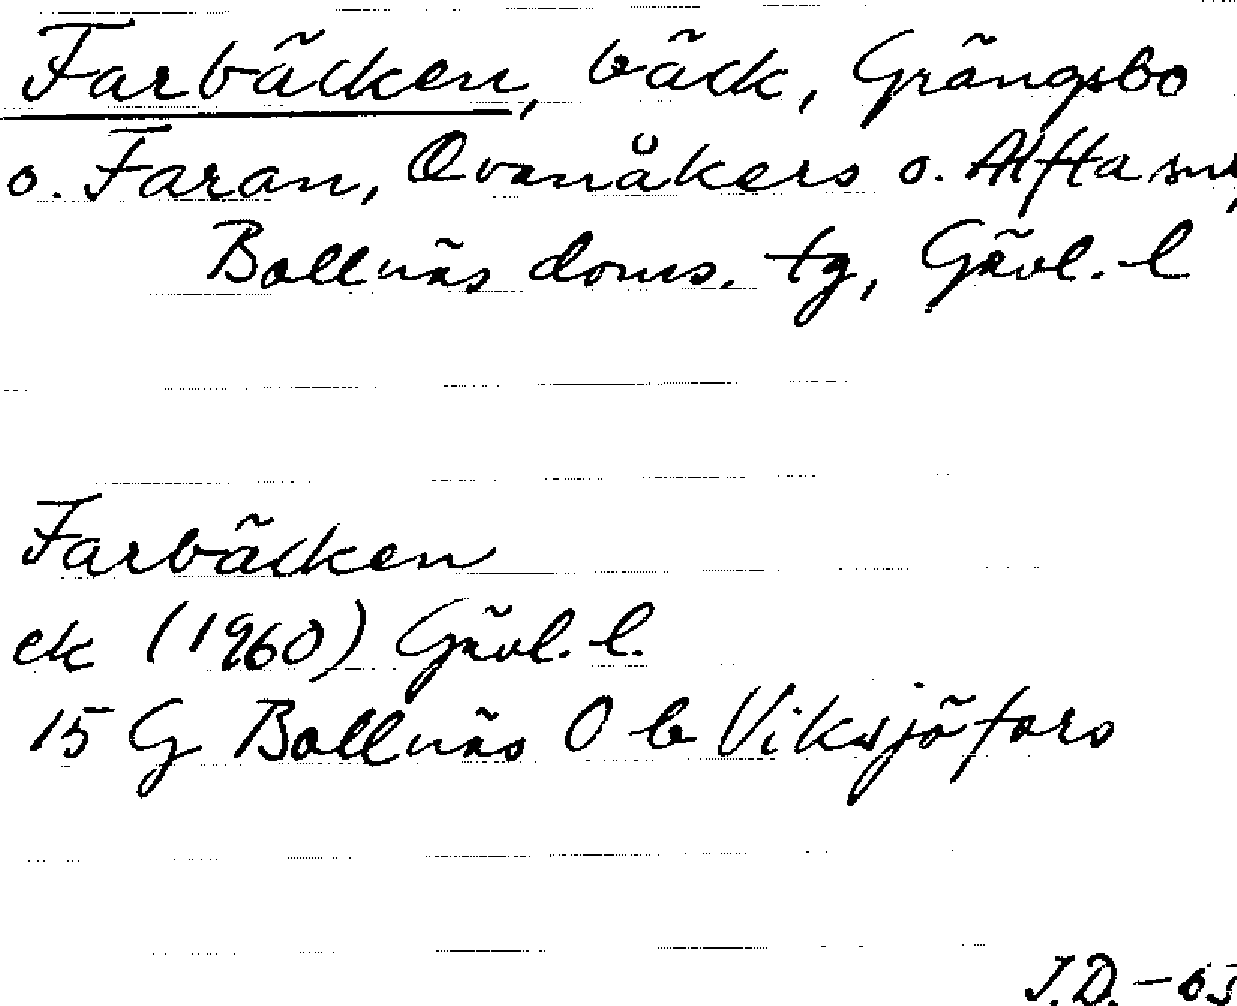 Farbäcken, bäck, Grängsbo
o. Faran, Ovanåkers o. Alfta snr,
Bollnäs doms. tg, Gävl. l
Farbäcken
ek (1960) Gävl. l.
15 G Bollnäs O b Viksjöfors
J.D. - 65